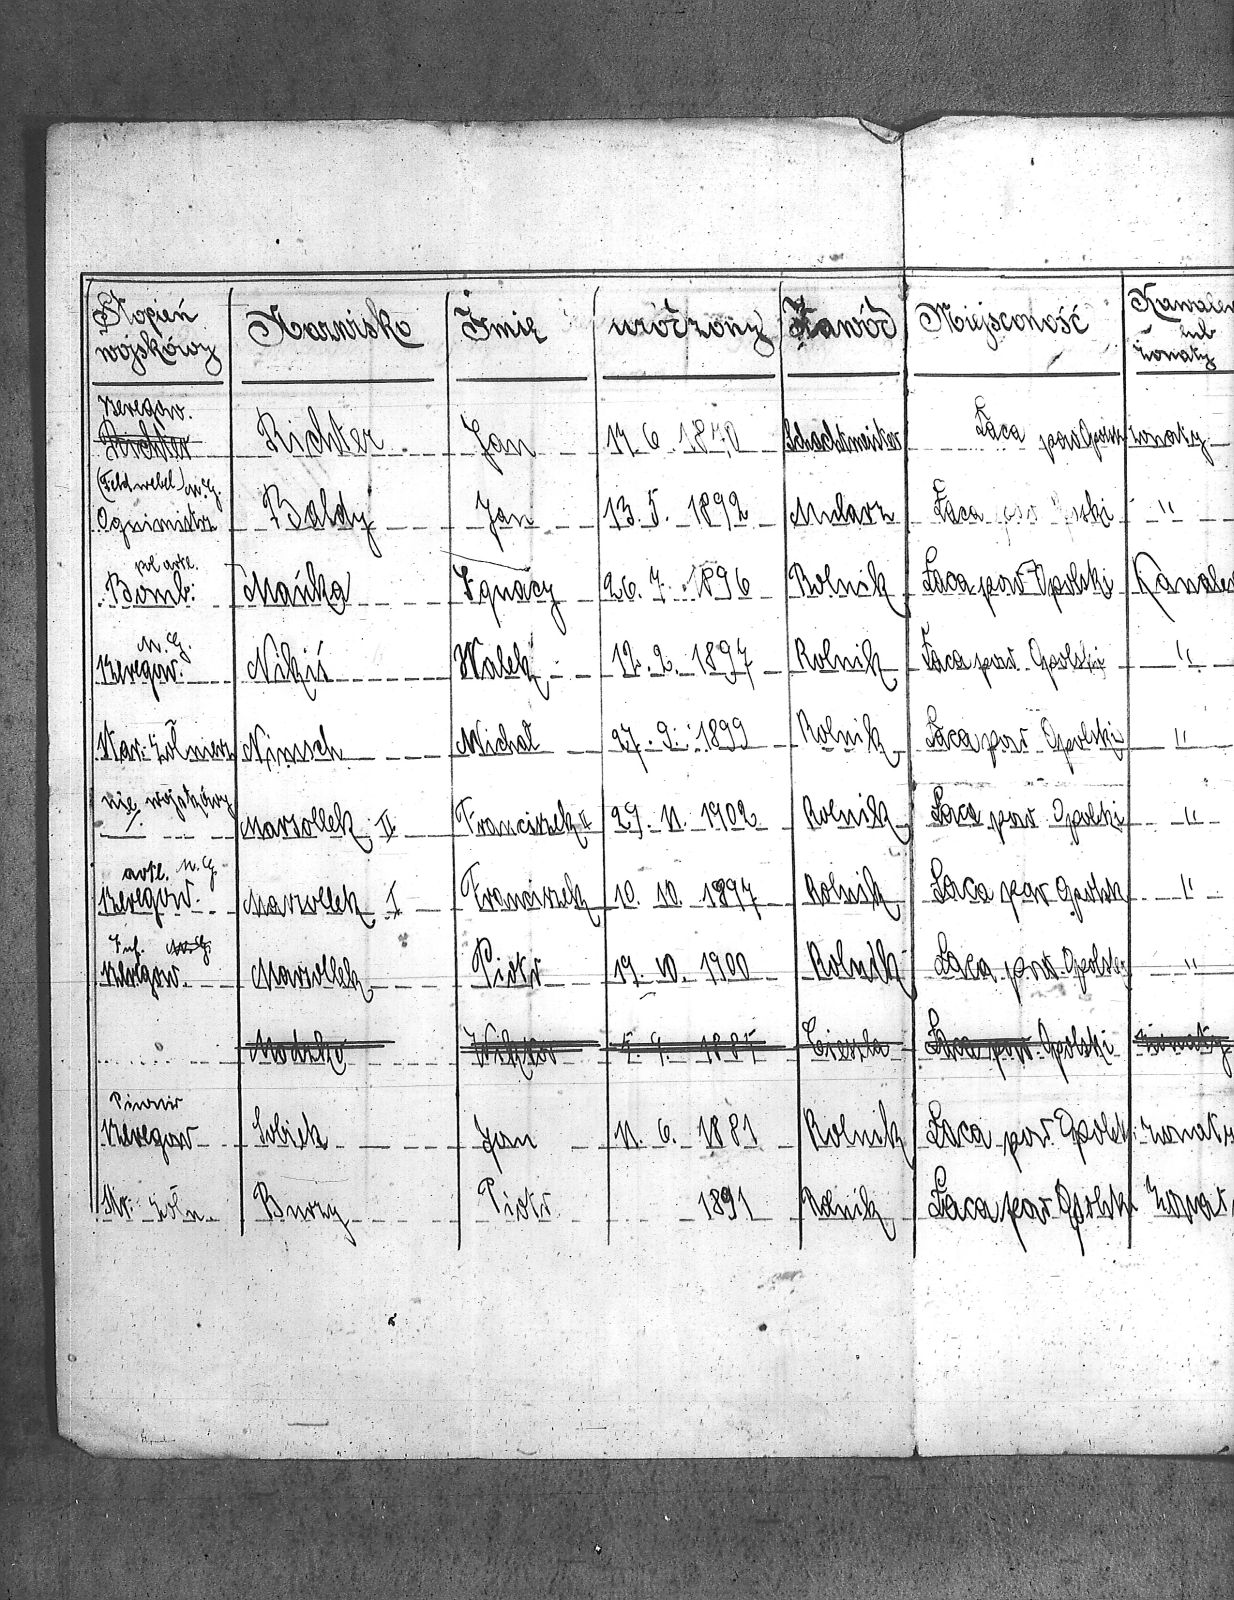 Stopień wojskówy Nazwisko Imię uródzony Zawód Miejscowość Kawaler lub żonaty
Szeregow. Richter Richter Jan 17 6 1870 Schachtmeister Łąca pow Opolski żonaty
(Feldwebel) M.G. Ogniomistrz Baldy Jan 13. 5. 1892 Mularz Łaca pow "
pol arte. Bomb. Mańka Ignacy 26. 7. 1896 Rolnik Łaca pow Opolski Kawaler
M.G. Szeregow. Nikiś Walek 12. 2. 1897 Rolnik Łaca pow. Opolski "
Nimsch Michał 27. 9. 1899 Rolnik Łaca pow Opolski "
nie wojskówy Marsollek II Franciszek II 29. 11. 1902 Rolnik Łaca pow Opolski "
arte. M.G. Szeregow. Marsollek I Franciszek 10. 10. 1897 Rolnik Łaca pow Opolsk "
Inf. M.G. Szeregow. Marsollek Piotr 19. 10. 1900 Rolnik Łaca pow Opolski "
Wiktor 1885 Cieszla Łaca pow Opolski żonaty
Pionier Szeregow Sobiek Jan 11. 6. 1881 Rolnik Łaca pow. Opolsk.
żoln. Burzy Piotr 1891 Rolnik Łaca pow Opolski